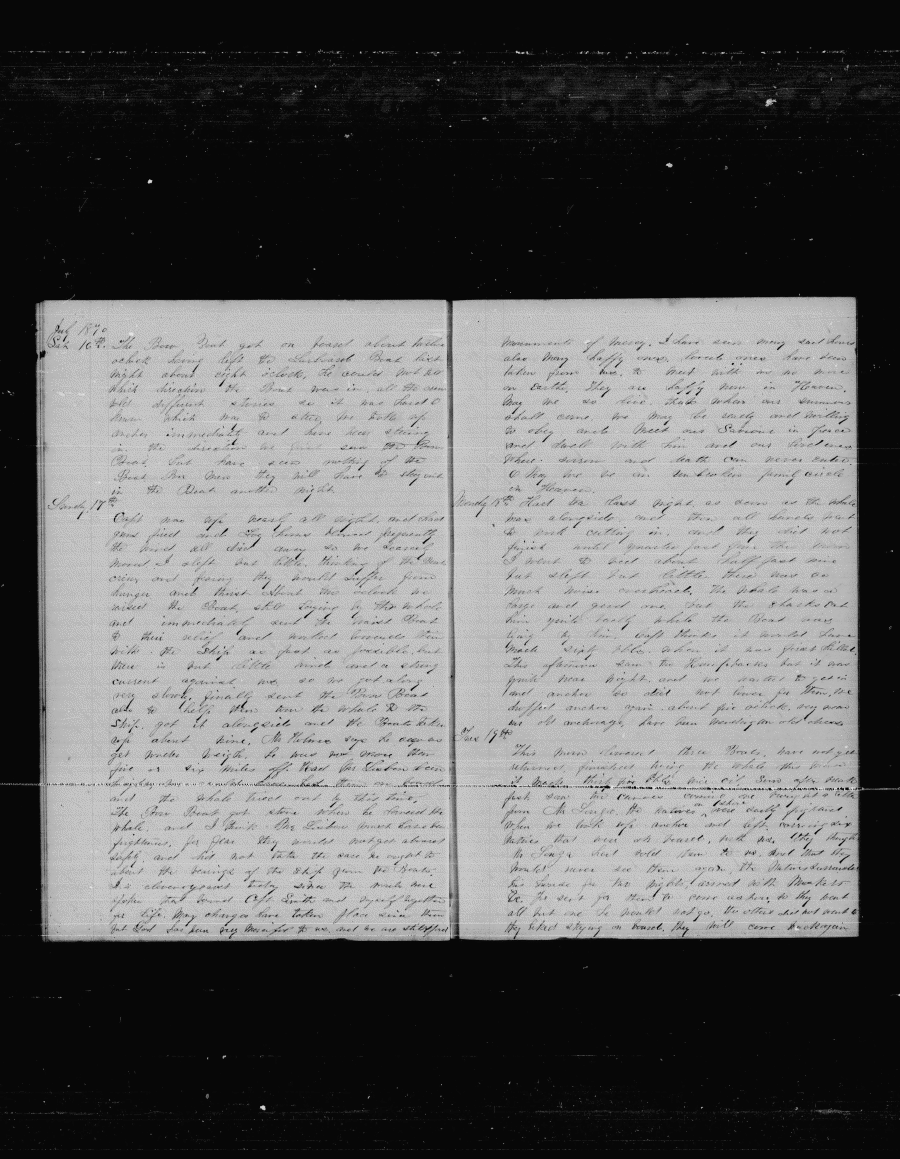 July 1870
Sat 16th. The Bow Boat got on board about twelve
oclock having left the Larboard Boat last
night about eight oclock, he could not tell
which direction the Boat was in, all the crew
told different stories so it was hard to
know which way to steer, we took up
anchor immediately and have been steering
in the direction we
Boat, but have seen nothing of the
Boat, Poor Men they will have to stay out
in the Boat another night.
Sunday 17th
Capt was up nearly all night, and had
guns fired and Fog horns blowed frequently
the wind all died away so we scarcely
moved I slept but little thinking of the Boats
crew, and fearing they would suffer from
hunger and thirst. About two oclock we
raised the Boat, still laying by the whale
and immediately sent the Waist Boat
to their relief and worked towards them
with the Ship as fast as possible, but
there is but little wind and a strong
current against us, so we got along
very slowly, finally sent the Bow Boat
also to help them tow the whale to the
Ship. got it alongside and the Boats taken
up about nine, Mr says he
get under weigh. he was not more than
five or six miles off. Had Mr been

and the whale tried out by this time,
The Bow Boat got stove when he the
whale, and I think Mr must have been
frightened, for fear they would not get aboard
safely, and did not take the care he ought to
about the bearings of the Ship from the Boats.
It is eleven years today since the words were
spoken that bound Capt Smith and myself together
for life. Many changes have taken place since then
but God has been very merciful to us, and we are still spared
monuments of mercy. I have seen many sad hours
also many happy ones, loved ones have been
taken from us, to meet with us no more
on Earth, They are happy now in Heaven,
May we so live that when our summons
shall come, we may be ready and willing
to obey and meet our Saviour in peace
and dwell with him and our loved ones
where sorrow and death can never enter
O May we be an unbroken family circle
in Heaven.
Monday 18th Had the last night as soon as the whale
was alongside and then all hands went
to work cutting in, and they did not
finish until quarter past four this morn
I went to bed about half past nine
but slept but little there was so
much noise overhead. The whale was a
large and good one, but the sharks eat
him quite badly while the Boat was
lying by him, Capt thinks it would have
made sixty bbls. when it was first killed.
This afternoon saw two Humpbacks but it was
quite near night, and we wanted to get in
and anchor so did not lower for them, we
dropped anchor again about six oclock, very near
our old anchorage, have been mending an old dress
Tues 19th
This morn lowered three Boats, have not yet
returned, finished trying the whale this morn
it made thirty bbls. nice oil Soon after
first saw two canoes coming one
from Mr the natives were sadly frightened
when we took up anchor and left, carrying six
natives that were on board, with us, they thought
Mr had sold them to us, and that they
would never see them again, the Natives surrounded
his house for two nights, armed with Muskets
&c. he sent for them to come ashore, so they went
all but one he would not go, the others did not want to
they liked staying on board, they will come back again